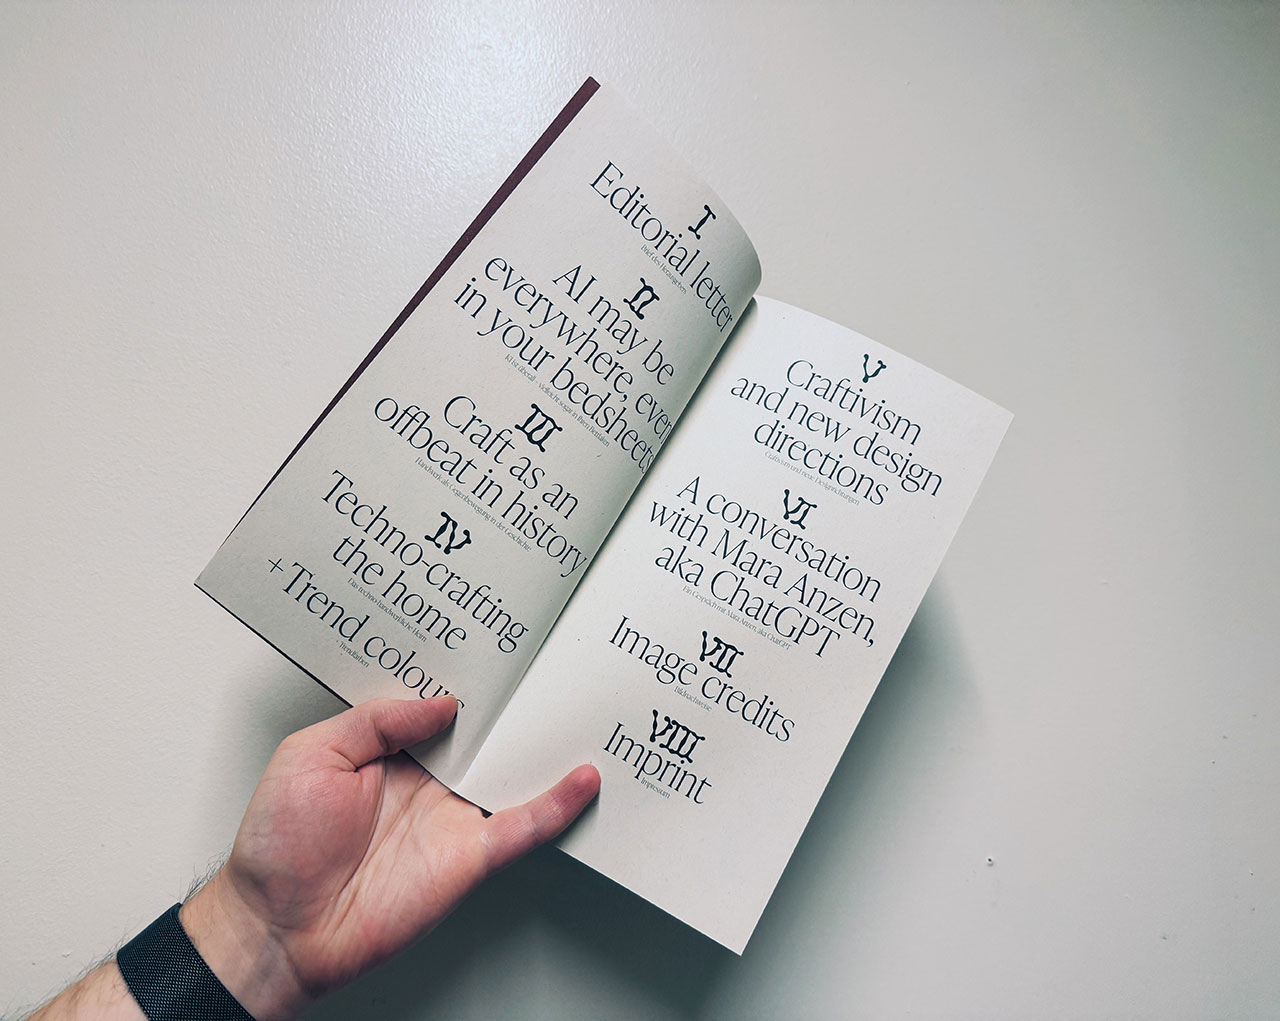 I
Editorial letter
Brief des Herausgebers
II
AI may be
everywhere, even
in your bedsheets
KI ist überall – vielleicht sogar in Ihren Bettlaken
III
Craft as an
offbeat in history
Handwerk als Gegenbewegung in der Geschichte
IV
Techno-crafting
the home
Das techno-handwerkliche Heim
+ Trend colours
Trendfarben
V
Craftivism
and new design
directions
Craftivism und neue Designrichtungen
VI
A conversation
with Mara Anzen,
aka ChatGPT
Ein Gespräch mit Mara Anzen, aka ChatGPT
VII
Image credits
Bildnachweise
VIII
Imprint
Impressum